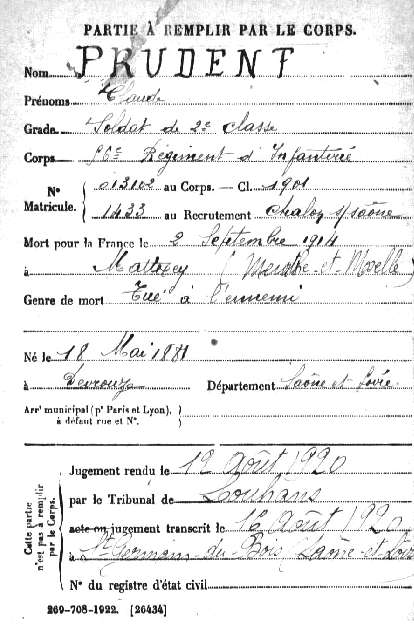 PARTIE À REMPLIR PAR LE CORPS.
Nom PRUDENT
Prénoms Claude
Grade Soldat de 2e classe
Corps Régiment d'Infanterie
N° Matricule. { 013102 au Corps. — Cl. 1901
1433 au Recrutement Chalon s/Saône
Mort pour la France le 2 Septembre 1914
à (Meurthe-et-Moselle)
Genre de mort Tué à l'ennemi
Né le 18 Mai 1881
à Devrouze Département Saône et Loire
Arrt municipal (pr Paris et Lyon), à défaut rue et N°. }
Cette partie n'est pas à remplir par le Corps.
Jugement rendu le 12 Août 1920
par le Tribunal de Louhans
acte ou jugement transcrit le 16 Août 1920
à St Germain-du-Bois, Saône-et-Loire
N° du registre d'état civil
269-708-1922. [26434]